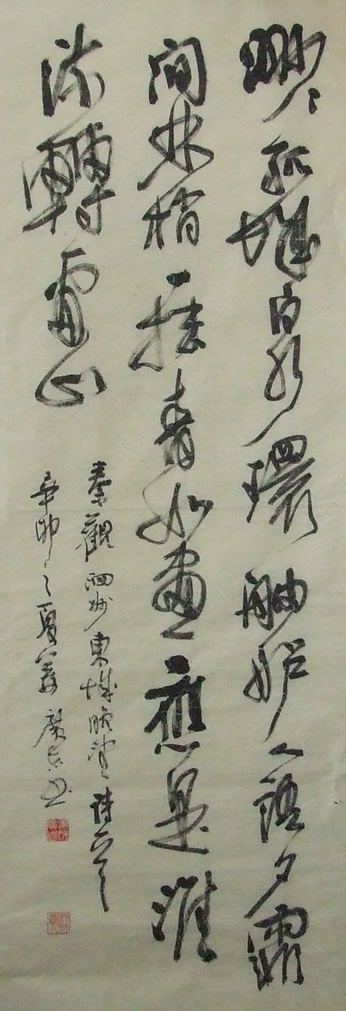 渺渺孤城白水環舳艫人語夕霏
間林梢一抹青如畫應是淮
流轉處山
秦觀泗州東城晚望詩一首
辛卯之夏 書